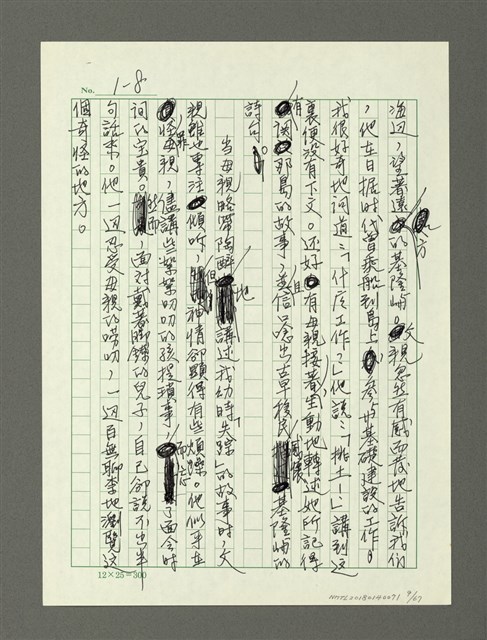 No. 1-8
海边，望着遠方的基隆嶼。父親忽然有感而發地告訴我们
，他在日据时代曾乘船到島上，參與基礎建設的工作。
我很好奇地问道：「什庅工作？」他說：「挑土！」講到这
裏便没有下文。还好，有母親接著生動地轉述她所記得
有関那島的故事，並且唸出古早移民感懷基隆嶼的
詩句。
当母親略带陶醉地講述我幼時「失踪」的故事時，父
親雖也專注傾听，但神情卻顯得有些煩躁。他似乎在
怪罪母親，儘講些絮絮叨叨的孩提瑣事，而忘了面会时
间的宝貴。然而，面对戴著脚鐐的兒子，自己卻說不出半
句話來。他一边忍受母親的唠叨，一边百無聊李地瀏覽这
個奇怪的地方。
12×25=300
NMTL20180140071 9/67